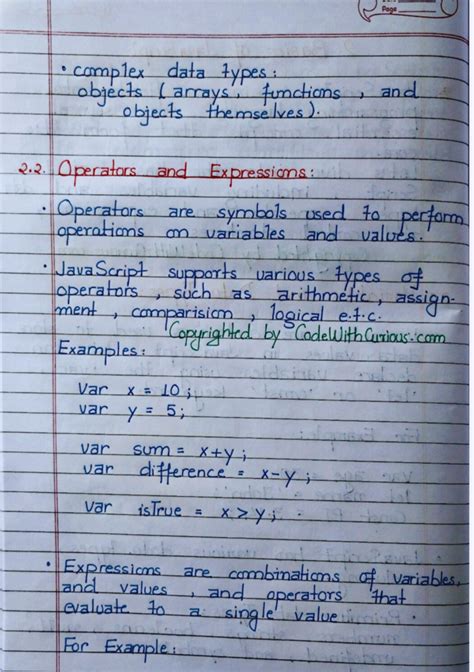 Page
• complex data types:
objects (arrays, functions, and
objects themselves).
2.2. Operators and Expressions:
• Operators are symbols used to perform
operations on variables and values.
• JavaScript supports various types of
operators, such as arithmetic, assign-
ment, comparision, logical e.t.c.
Copyrighted by CodeWithCurious.com
Examples:
Var x = 10;
var y = 5;
var sum = x+y;
var difference = x-y;
var isTrue = x>y;
• Expressions are combinations of variables,
and values, and operators that
evaluate to a single value.
For Example: